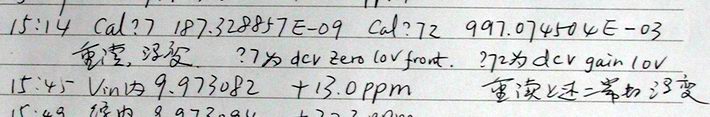 15:14 Cal?7 187.328857E-09 Cal?72 997.074504E-03
重读,没变. ?7为dcv zero 10v front. ?72为dcv gain 10V
15:45 Vin为 9.973082 +13.0ppm 重读上述二常数没变
15:49